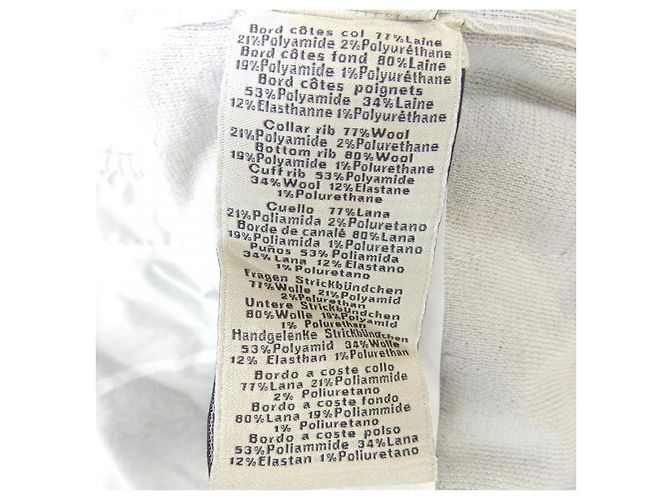 Bord côtes col 77%Laine
21%Polyamide 2%Polyuréthane
Bord côtes fond 80%Laine
19%Polyamide 1%Polyuréthane
Bord côtes poignets
53%Polyamide 34%Laine
12%Elasthanne 1%Polyuréthane
Collar rib 77%Wool
21%Polyamide 2%Polurethane
Bottom rib 80%Wool
19%Polyamide 1%Polurethane
Cuff rib 53%Polyamide
34%Wool 12%Elastane
1%Polurethane
Cuello 77%Lana
21%Poliamida 2%Poluretano
Borde de canalé 80%Lana
19%Poliamida 1%Poluretano
Puños 53%Poliamida
34%Lana 12%Elastano
1%Poluretano
Fragen Strickbündchen
77%Wolle 21%Polyamid
2%Polurethan
Untere Strickbündchen
80%Wolle 19%Polyamid
1% Polurethan
Handgelenke Strickbündchen
53%Polyamid 34%Wolle
12% Elasthan 1%Polurethan
Bordo a coste collo
77%Lana 21%Poliammide
2% Poliuretano
Bordo a coste fondo
80%Lana 19%Poliammide
1% Poliuretano
Bordo a coste polso
53%Poliammide 34%Lana
12%Elastan 1%Poliuretano